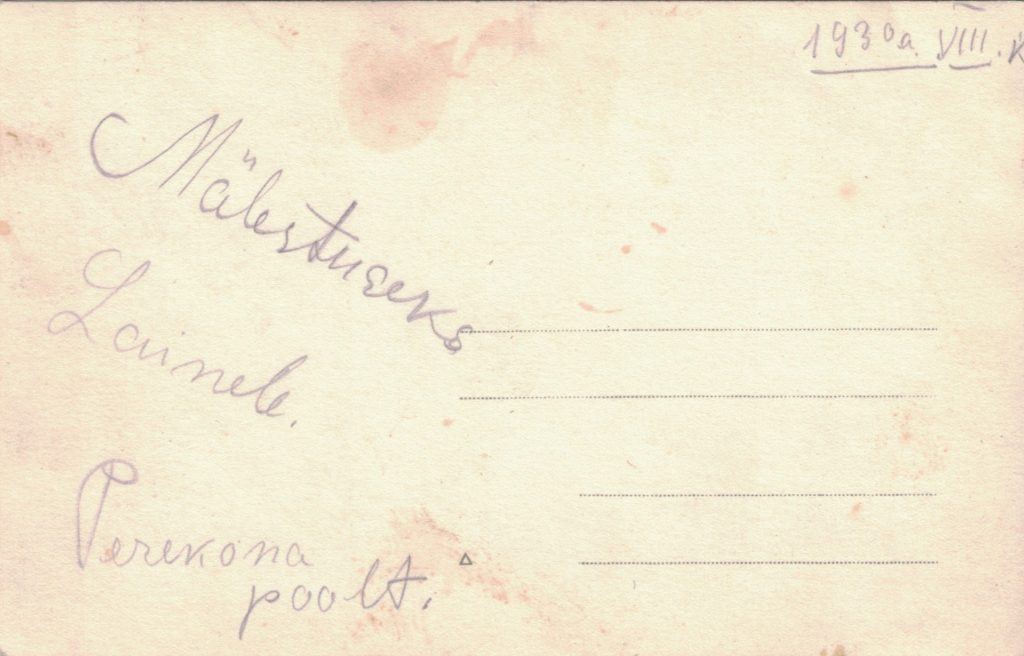 1930a. VIII. k
Mälestuseks
Lainele.
Perekona
poolt.